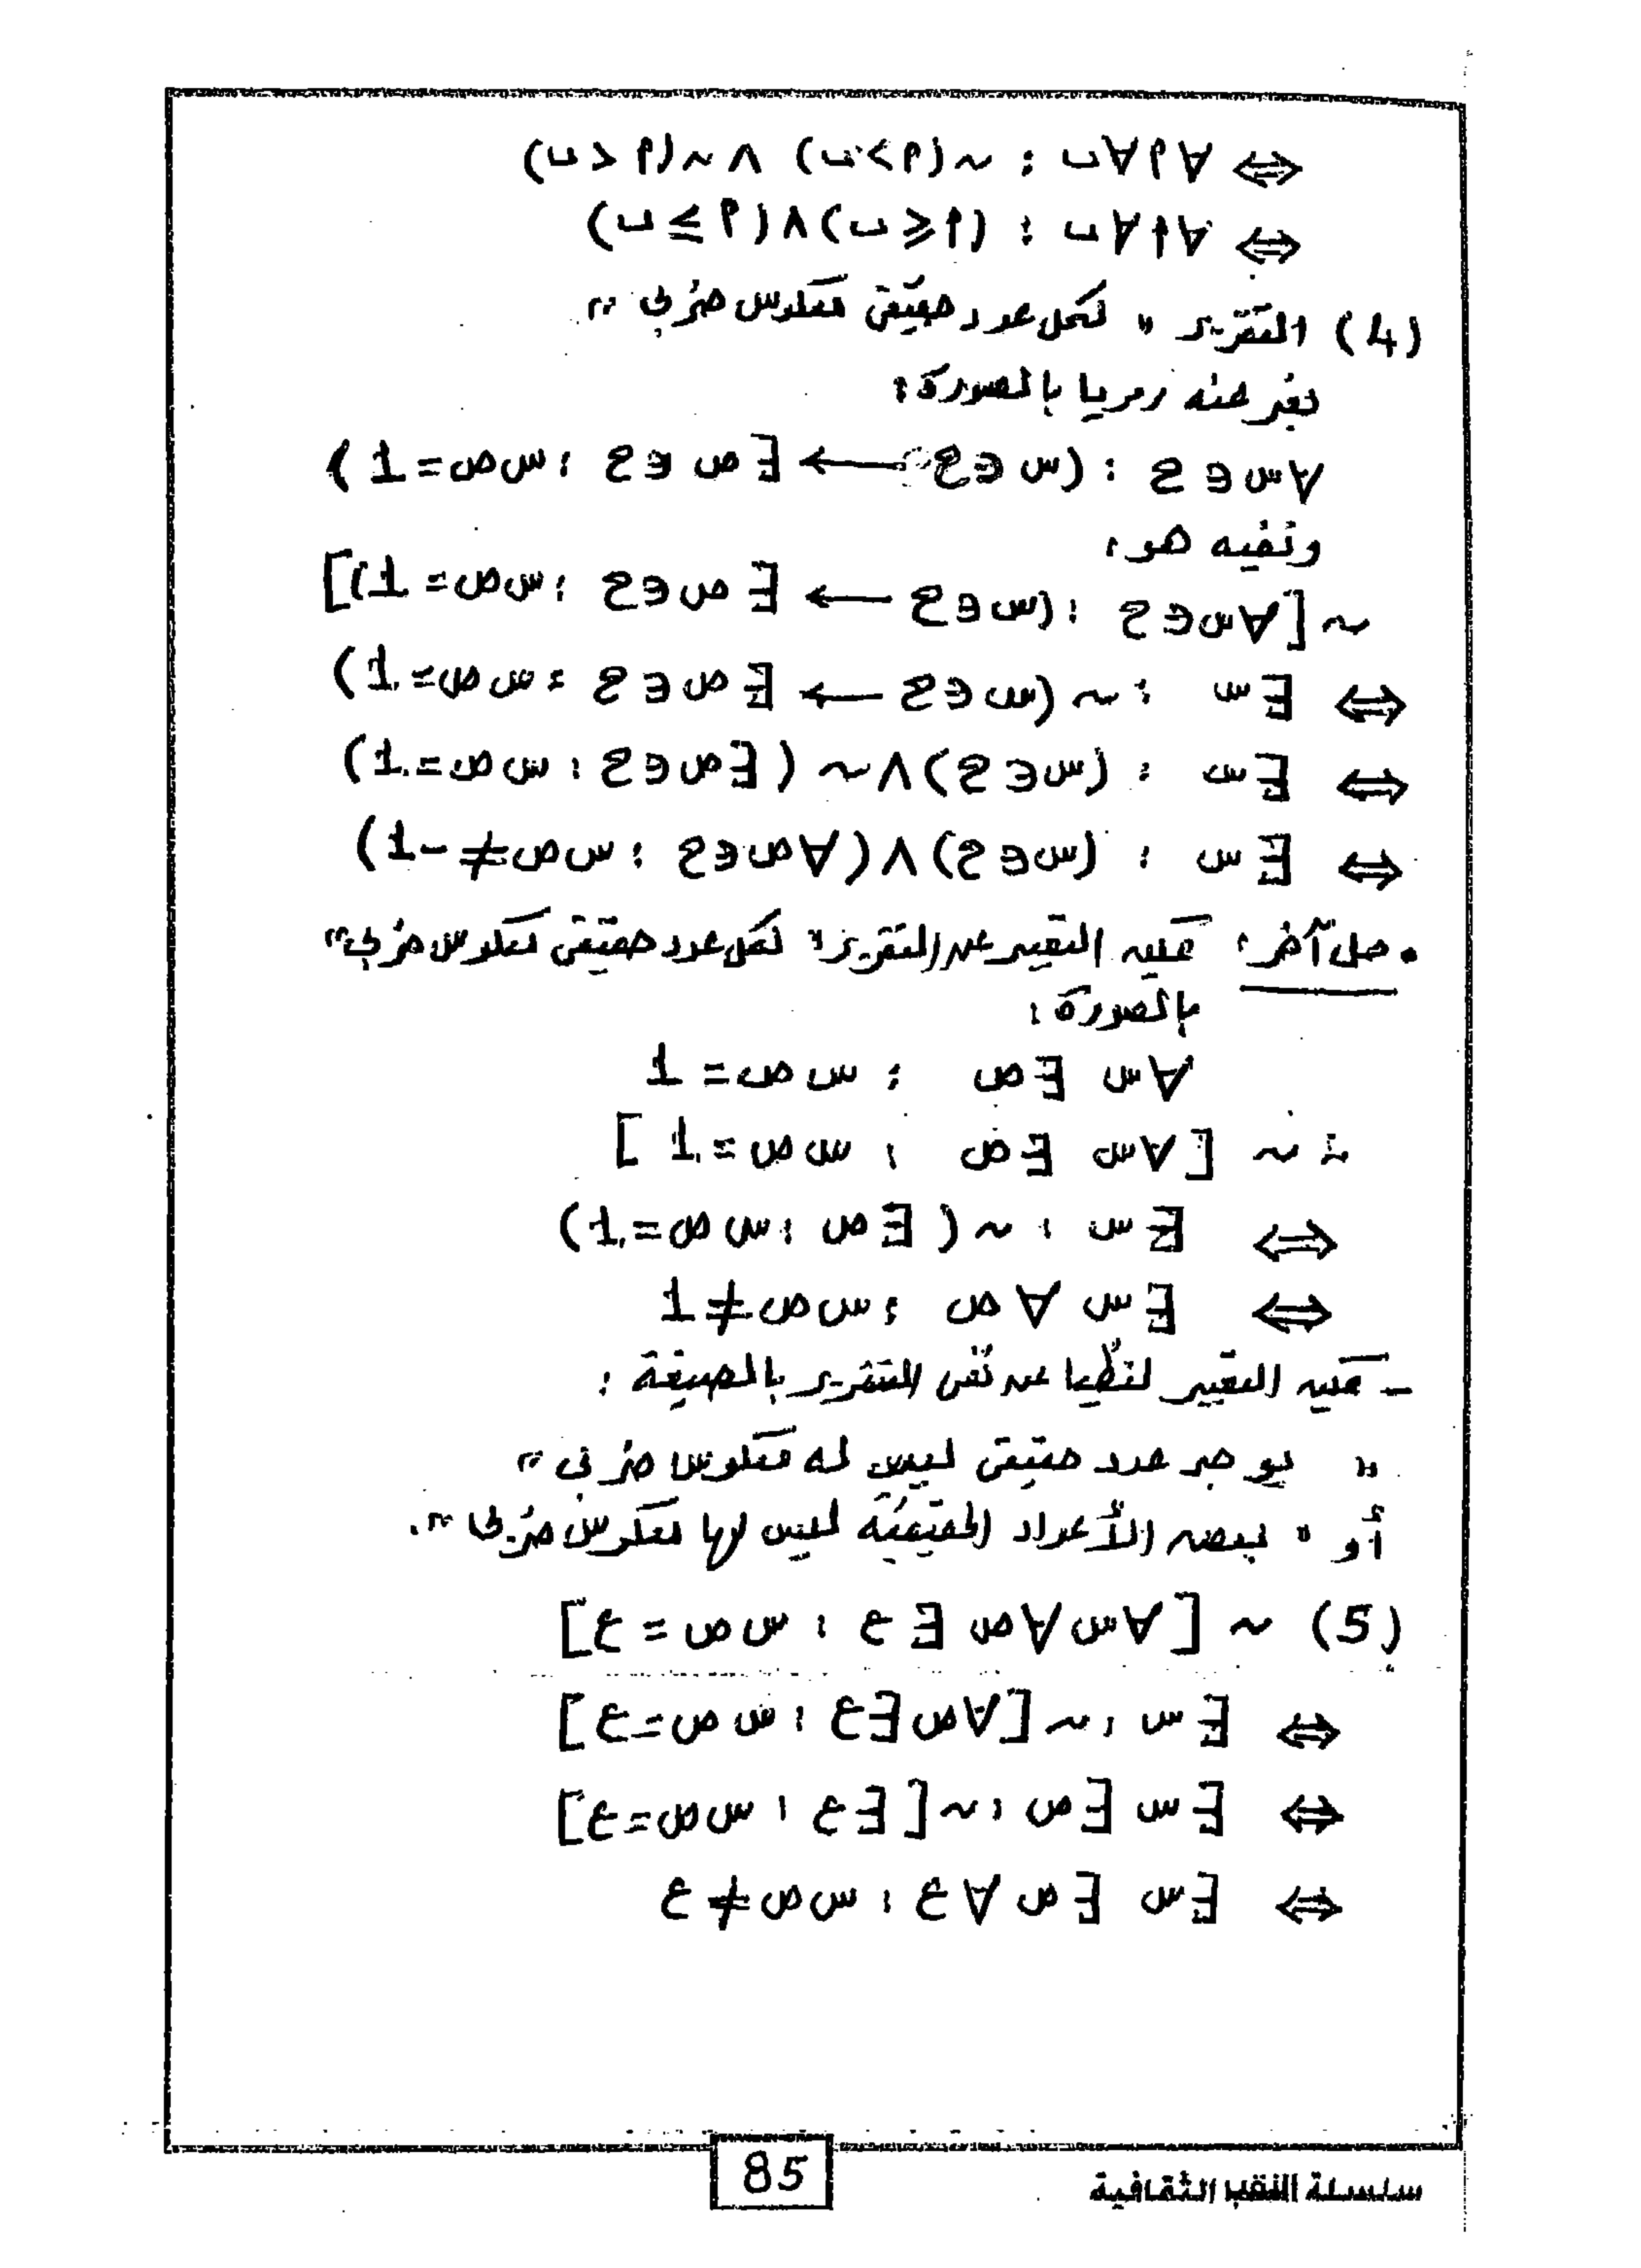 ⇔ ∀ ٢ ∀ ن : ~(٢ > ن) ∧ ~(٢ < ن)
⇔ ∀ ٢ ∀ ن : (٢ ≤ ن) ∧ (٢ ≥ ن)
(4) التقرير " لكل عدد حقيقي معكوس ضربي "
نعبر عنه رمزيا بالصورة :
∀ س ∈ ح : (س ∈ ح ← ∃ ص ∈ ح : س ص = 1)
ونفيه هو :
~ [∀ س ∈ ح : (س ∈ ح ← ∃ ص ∈ ح : س ص = 1)]
⇔ ∃ س : ~ (س ∈ ح ← ∃ ص ∈ ح : س ص = 1)
⇔ ∃ س : (س ∈ ح) ∧ ~ (∃ ص ∈ ح : س ص = 1)
⇔ ∃ س : (س ∈ ح) ∧ (∀ ص ∈ ح : س ص ≠ 1-)
• حل آخر : يمكن التعبير عن التقرير " لكل عدد حقيقي معكوس ضربي "
بالصورة :
∀ س ∃ ص : س ص = 1
∴ ~ [∀ س ∃ ص : س ص = 1]
⇔ ∃ س : ~ (∃ ص : س ص = 1)
⇔ ∃ س ∀ ص : س ص ≠ 1
- يمكن التعبير لفظيا عن نفي التقرير بالصيغة :
" يوجد عدد حقيقي ليس له معكوس ضربي "
أو " بعض الأعداد الحقيقية ليس لها معكوس ضربي ".
(5) ~ [∀ س ∀ ص ∃ ع : س ص = ع]
⇔ ∃ س : ~ [∀ ص ∃ ع : س ص = ع]
⇔ ∃ س ∃ ص : ~ [∃ ع : س ص = ع]
⇔ ∃ س ∃ ص ∀ ع : س ص ≠ ع
85
سلسلة النقب الثقافية